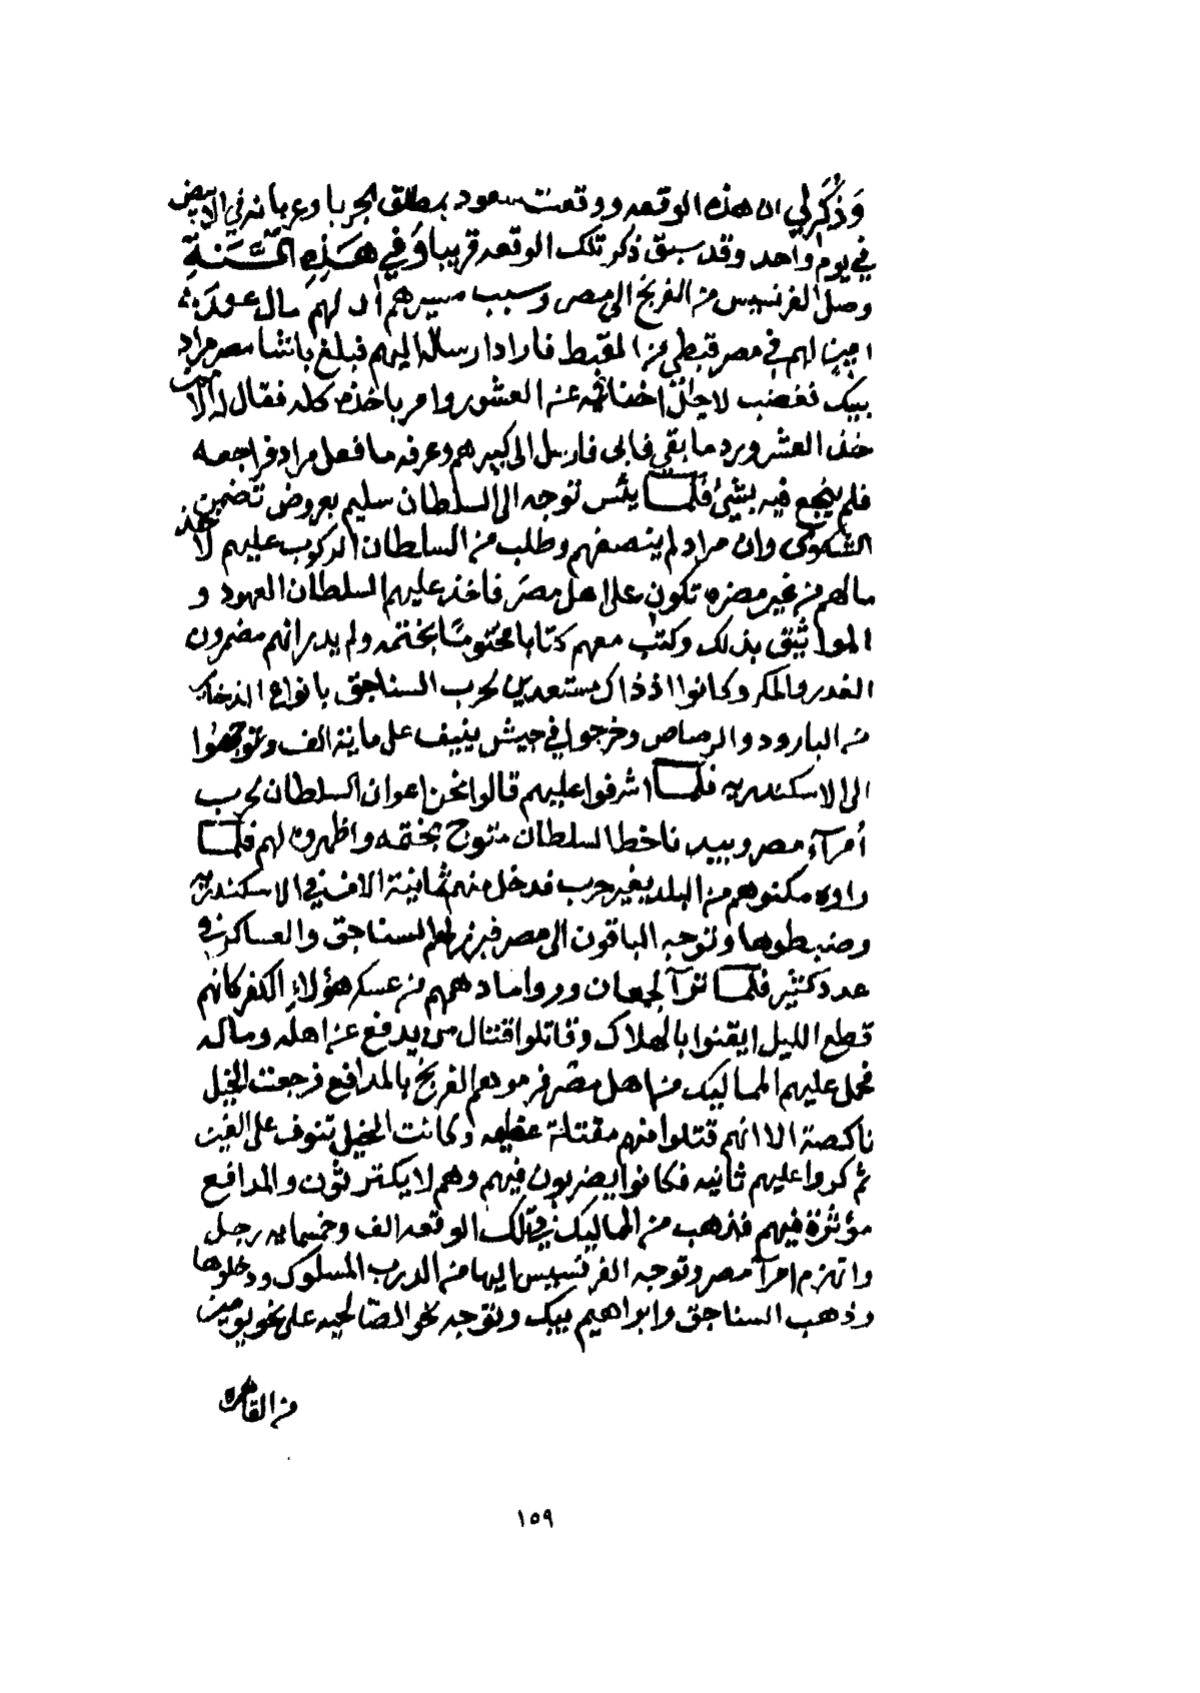 وَذُكِرَ لي ان هذه الوقعه ووقعت سعود بمطلق الجربا وعربانه في الابيض
في يوم واحد وقد سبق ذكر تلك الوقعه قريبا وَفي هَذِهِ السَّنَةِ
وصل الفرنسيس من الفرنج الى مصر وسبب مسيرهم أن لهم مال عند
امين لهم في مصر قبطي من القبط فاراد ارساله اليهم فبلغ باشا مصر مراد
بيك فغضب لاجل اخفائه عن العشور وامر باخذه كله فقال له الامين
خذ العشر ورد ما بقي فابى فارسل الى كبيرهم وعرفه ما فعل مراد فراجعه
فلم ينجع فيه بشئ فلما يئس توجه الى السلطان سليم بعروض تضمن
الشكوى وان مراد لم ينصفهم وطلب من السلطان الركوب عليهم لاخذ
مالهم من غير مضره تكون على اهل مصر فاخذ عليهم السلطان العهود و
المواثيق بذلك وكتب معهم كتابا مختومًا بختمه ولم يدر انهم مضمرون
الغدر والمكر وكانوا اذ ذاك مستعدين لحرب السناجق بانواع الذخاير
من البارود والرصاص وخرجوا في جيش ينيف على ماية الف وتوجهوا
الى الاسكندريه فلما اشرفوا عليهم قالوا نحن اعوان السلطان لحرب
أمرآء مصر وبيدنا خط السلطان متوج بختمه واظهروه لهم فلما
راوه مكنوهم من البلد بغير حرب فدخل منهم ثمانية الاف في الاسكندريه
وضبطوها وتوجه الباقون الى مصر فبرز لهم السناجق والعساكر في
عدد كثير فلما ترآ الجمعان وراوا ما دهمهم من عسكر هؤلاءِ الكفر كانهم
قطع الليل ايقنوا بالهلاك وقاتلوا قتال من يدفع عن اهله وماله
فحمل عليهم المماليك من اهل مصر فرموهم الفرنج بالمدافع فرجعت الخيل
ناكصة الا انهم قتلوا منهم مقتلة عظيمه وكانت الخيل تنوف على الفين
ثم كروا عليهم ثانيه فكانوا يضربون فيهم وهم لا يكترثون والمدافع
مؤثرة فيهم فذهب من المماليك في تلك الوقعه الف وخمسمايه رجل
وانهزم امرآ مصر وتوجه الفرنسيس اليها من الدرب المسلوك ودخلوها
وذهب السناجق وابراهيم بيك وتوجه نحو الصّالحيه على نحو يومين
من القاهره
١٥٩